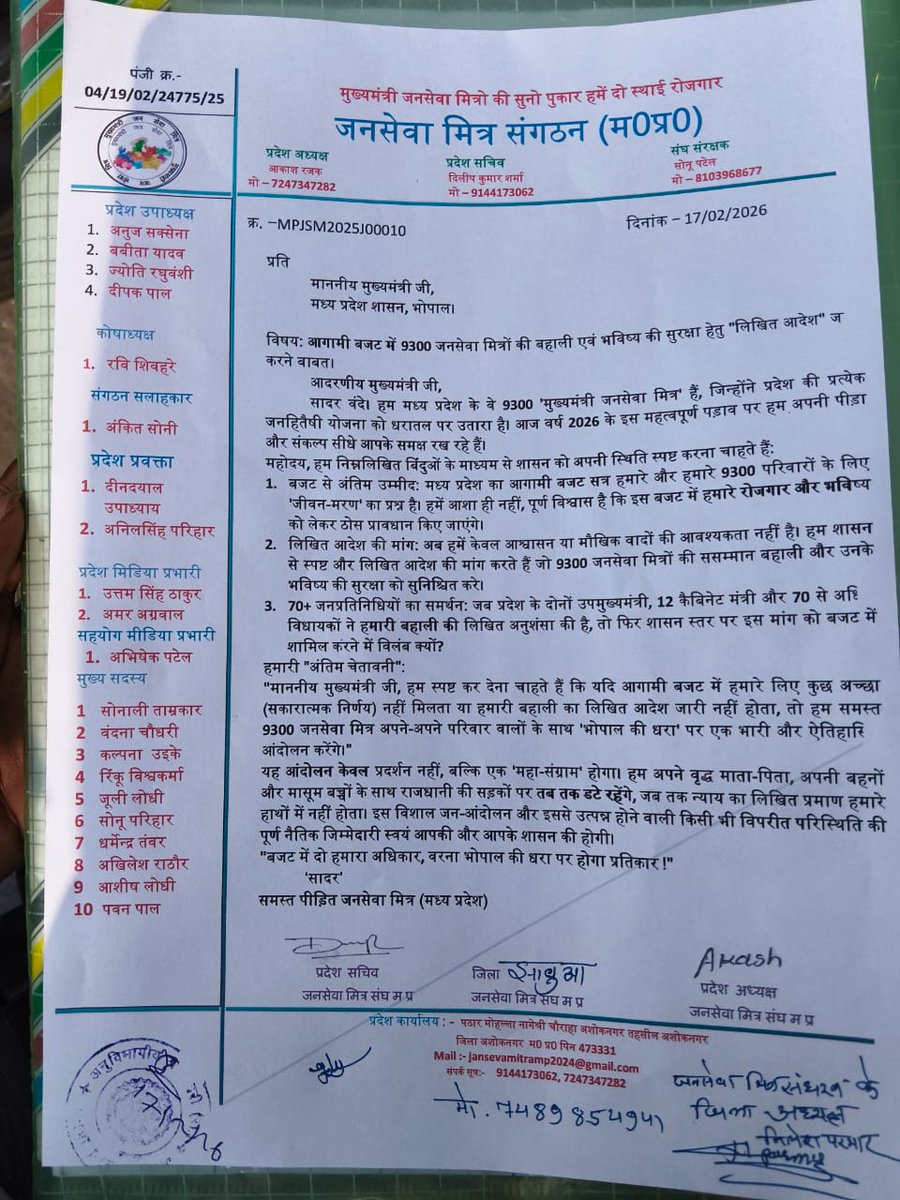 पंजी क्र.-
04/19/02/24775/25
मुख्यमंत्री जनसेवा मित्रो की सुनो पुकार हमें दो स्थाई रोजगार
जनसेवा मित्र संगठन (म0प्र0)
प्रदेश अध्यक्ष
आकाश रजक
मो – 7247347282
प्रदेश सचिव
दिलीप कुमार शर्मा
मो – 9144173062
संघ संरक्षक
सोनू पटेल
मो – 8103968677
प्रदेश उपाध्यक्ष
1. अनुज सक्सेना
2. बबीता यादव
3. ज्योति रघुवंशी
4. दीपक पाल
कोषाध्यक्ष
1. रवि शिवहरे
संगठन सलाहकार
1. अंकित सोनी
प्रदेश प्रवक्ता
1. दीनदयाल
उपाध्याय
2. अनिलसिंह परिहार
प्रदेश मिडिया प्रभारी
1. उत्तम सिंह ठाकुर
2. अमर अग्रवाल
सहयोग मीडिया प्रभारी
1. अभिषेक पटेल
मुख्य सदस्य
1 सोनाली ताम्रकार
2 वंदना चौधरी
3 कल्पना उइके
4 रिंकू विश्वकर्मा
5 जूली लोधी
6 सोनू परिहार
7 धर्मेन्द्र तंवर
8 अखिलेश राठौर
9 आशीष लोधी
10 पवन पाल
क्र. –MPJSM2025J00010
दिनांक – 17/02/2026
प्रति
माननीय मुख्यमंत्री जी,
मध्य प्रदेश शासन, भोपाल।
विषय: आगामी बजट में 9300 जनसेवा मित्रों की बहाली एवं भविष्य की सुरक्षा हेतु "लिखित आदेश" ज
करने बाबत।
आदरणीय मुख्यमंत्री जी,
सादर वंदे। हम मध्य प्रदेश के वे 9300 'मुख्यमंत्री जनसेवा मित्र' हैं, जिन्होंने प्रदेश की प्रत्येक
जनहितैषी योजना को धरातल पर उतारा है। आज वर्ष 2026 के इस महत्वपूर्ण पड़ाव पर हम अपनी पीड़ा
और संकल्प सीधे आपके समक्ष रख रहे हैं।
महोदय, हम निम्नलिखित बिंदुओं के माध्यम से शासन को अपनी स्थिति स्पष्ट करना चाहते हैं:
1. बजट से अंतिम उम्मीद: मध्य प्रदेश का आगामी बजट सत्र हमारे और हमारे 9300 परिवारों के लिए
'जीवन-मरण' का प्रश्न है। हमें आशा ही नहीं, पूर्ण विश्वास है कि इस बजट में हमारे रोजगार और भविष्य
को लेकर ठोस प्रावधान किए जाएंगे।
2. लिखित आदेश की मांग: अब हमें केवल आश्वासन या मौखिक वादों की आवश्यकता नहीं है। हम शासन
से स्पष्ट और लिखित आदेश की मांग करते हैं जो 9300 जनसेवा मित्रों की ससम्मान बहाली और उनके
भविष्य की सुरक्षा को सुनिश्चित करे।
3. 70+ जनप्रतिनिधियों का समर्थन: जब प्रदेश के दोनों उपमुख्यमंत्री, 12 कैबिनेट मंत्री और 70 से अधि
विधायकों ने हमारी बहाली की लिखित अनुशंसा की है, तो फिर शासन स्तर पर इस मांग को बजट में
शामिल करने में विलंब क्यों?
हमारी "अंतिम चेतावनी":
"माननीय मुख्यमंत्री जी, हम स्पष्ट कर देना चाहते हैं कि यदि आगामी बजट में हमारे लिए कुछ अच्छा
(सकारात्मक निर्णय) नहीं मिलता या हमारी बहाली का लिखित आदेश जारी नहीं होता, तो हम समस्त
9300 जनसेवा मित्र अपने-अपने परिवार वालों के साथ 'भोपाल की धरा' पर एक भारी और ऐतिहारि
आंदोलन करेंगे।"
यह आंदोलन केवल प्रदर्शन नहीं, बल्कि एक 'महा-संग्राम' होगा। हम अपने वृद्ध माता-पिता, अपनी बहनों
और मासूम बच्चों के साथ राजधानी की सड़कों पर तब तक डटे रहेंगे, जब तक न्याय का लिखित प्रमाण हमारे
हाथों में नहीं होता। इस विशाल जन-आंदोलन और इससे उत्पन्न होने वाली किसी भी विपरीत परिस्थिति की
पूर्ण नैतिक जिम्मेदारी स्वयं आपकी और आपके शासन की होगी।
"बजट में दो हमारा अधिकार, वरना भोपाल की धरा पर होगा प्रतिकार !"
'सादर'
समस्त पीड़ित जनसेवा मित्र (मध्य प्रदेश)
प्रदेश सचिव
जनसेवा मित्र संघ म प्र
जिला झाबुआ
जनसेवा मित्र संघ म प्र
Akash
प्रदेश अध्यक्ष
जनसेवा मित्र संघ म प्र
प्रदेश कार्यालय : - पठार मोहल्ला नागेश्री चौराहा अशोकनगर तहसील अशोकनगर
जिला अशोकनगर म0 प्र0 पिन 473331
Mail :- jansevamitramp2024@gmail.com
संपर्क सूत्र:- 9144173062, 7247347282
मो. 7489854941
जनसेवा मित्र के
जिला अध्यक्ष
निलेश परमार